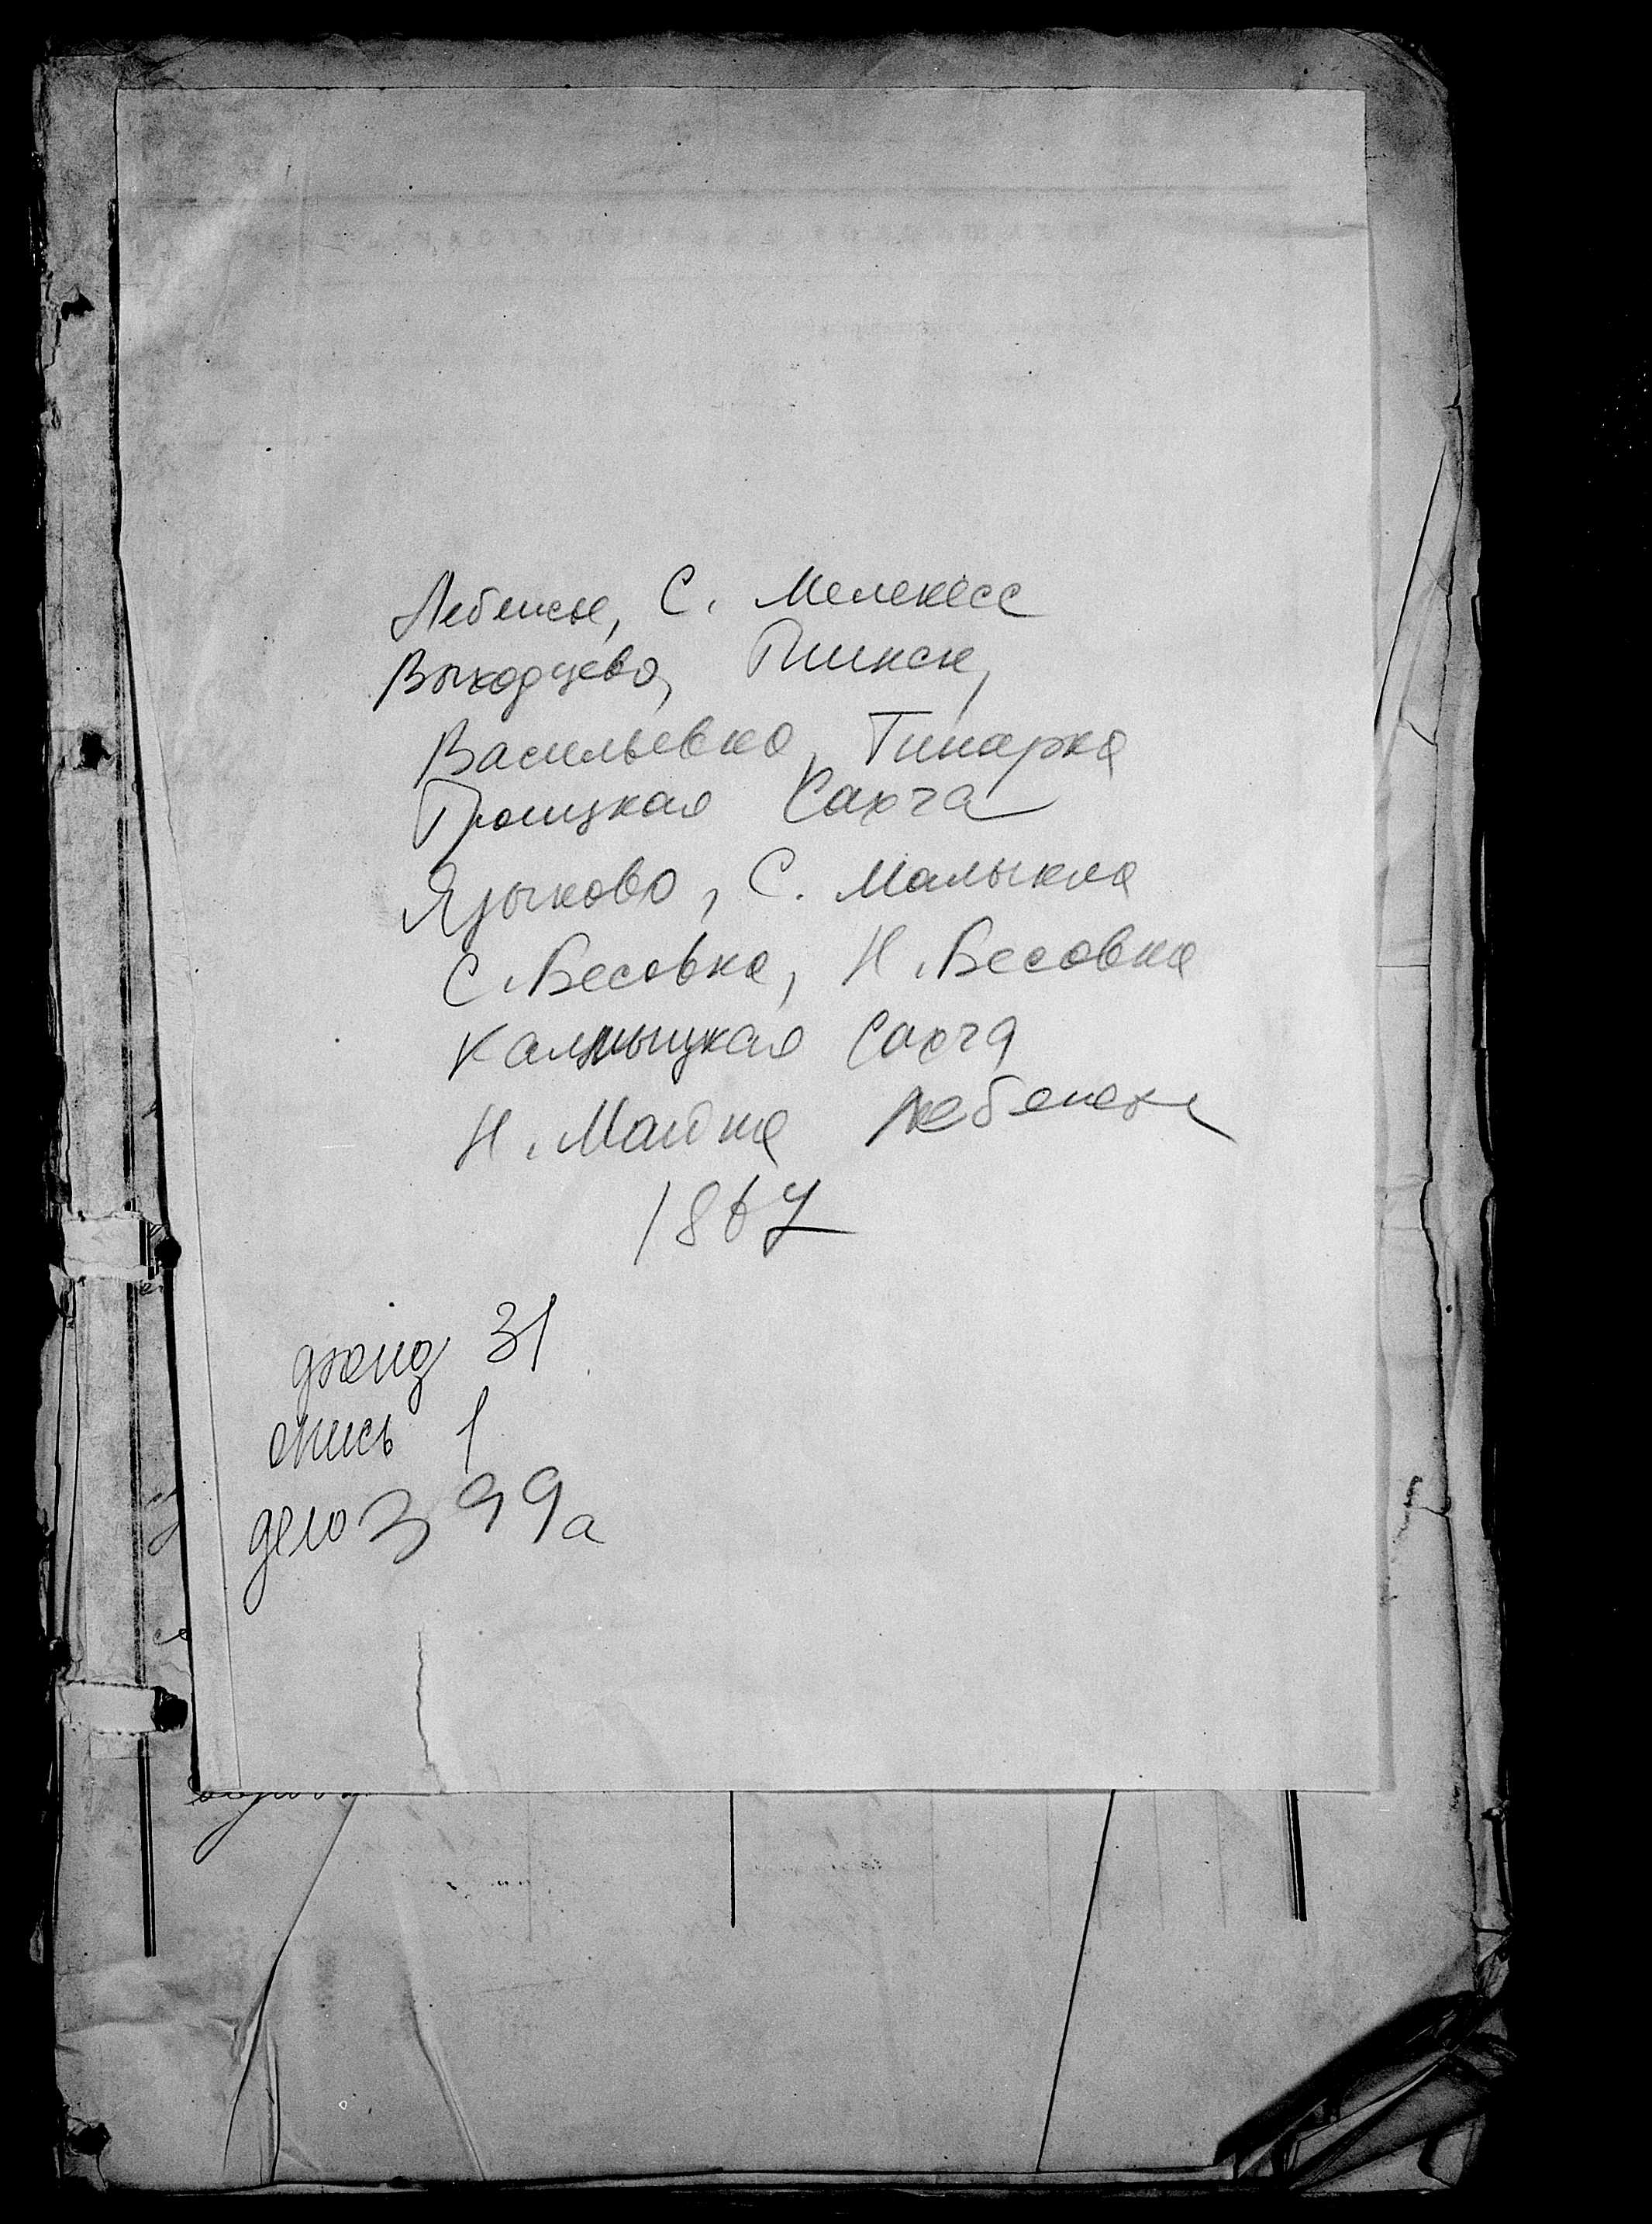 Лебяжье, С. Мелекесс
Выходцево,
Васильевка, Тинарка
Троицкая Сахча
Языково, С. Малыкла
С. Бесовка, Н. Бесовка
Калмыцкая Сахча
Н. Майна
1867
фонд 31
опись 1
дело 399а